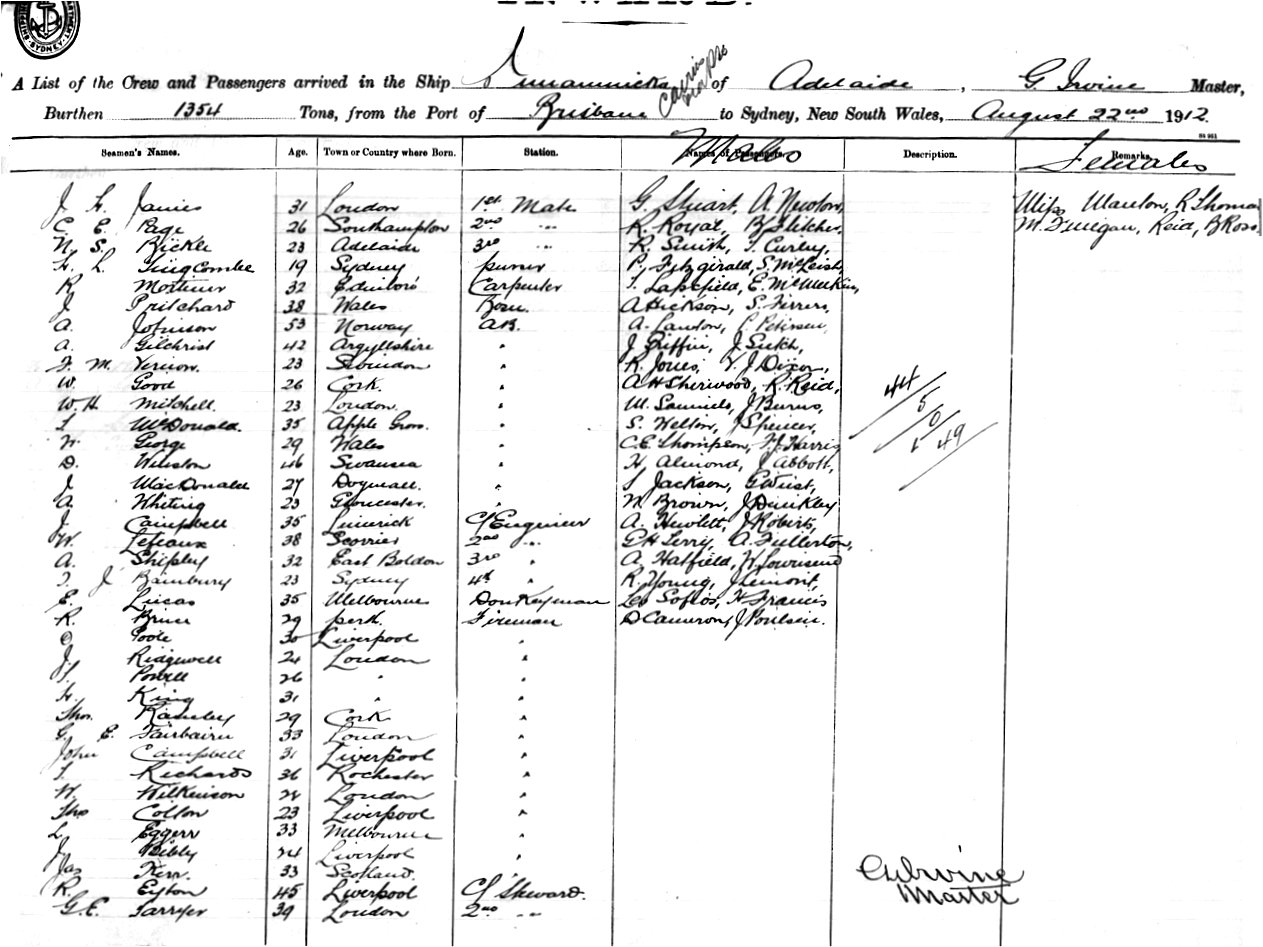 SYDNEY
A List of the Crew and Passengers arrived in the Ship of Adelaide, G. Irvine Master,
Burthen 1354 Tons, from the Port of Brisbane to Sydney, New South Wales, August 22nd 1912
Seamen's Names. Age. Town or Country where Born. Station. Names of Passengers. Males Description. Remarks. Females
J. James 31 London 1st Mate G. Stuart, A. Newton, Miss R Thomas
C E. Page 26 Southampton 2nd " R. Royal, Reid, B Ross
N. S. Bickle 23 Adelaide 3rd " R. Smith, T. Curley,
H. L. 19 Sydney P. Fitzgirald, S. McLeish,
R. Mortimer 32 Edinboro' Carpenter
J Pritchard 38 Wales Bosn. A Hickson, S. Firrers,
A. Johnson 53 Norway A.B. A. Lawton, Petersen,
A. Gilchrist 42 Argyllshire " J Griffin,
F. M. Vernon. 23 Swindon " R. Jones, V. J Dixon,
W. Good 26 Cork. " A H Sherwood, R. Reid, 44
W. H. Mitchell. 23 London. " W. Samuels, J Burns, 5
T McDonald. 35 " S. Welton, J Spencer, 0
George 29 Wales " C. E. Thompson, Harris 49
D. 46 Swansea " H. Almond, J Abbott,
J MacDonald 27 " Jackson, G West,
A. Whiting 23 Gloucester. " W Brown, J Dunkley
J. Campbell 35 Limerick C/ Engineer A. Hewlett, J Roberts,
W. 38 Scorrier 2nd " A. Fullerton,
A. Shipley 32 East Boldon 3rd " A Hatfield, H. Townsend
T. J Bambury 23 Sydney 4th " R. Young, J Lemont,
E. Lucas 35 Melbourne Donkeyman Leo Soflos, H Francis
R. Bruce 29 Perth. Fireman D Cameron, J Poulsen.
Poole 30 Liverpool "
J. Ridgwell 24 London "
Powell 26 " "
H. King 31 " "
Thos. 29 Cork "
G. E. Fairbairn 33 London "
John Campbell 31 Liverpool "
T Richards 36 Rochester "
Wilkinson London "
Thos Colton 23 Liverpool "
L. Eggers 33 Melbourne "
J Bibby 24 Liverpool "
Jas Kerr. 33 Scotland. "
R. Eyton 45 Liverpool C/ Steward. Irvine
G. E. 39 London 2nd " Master